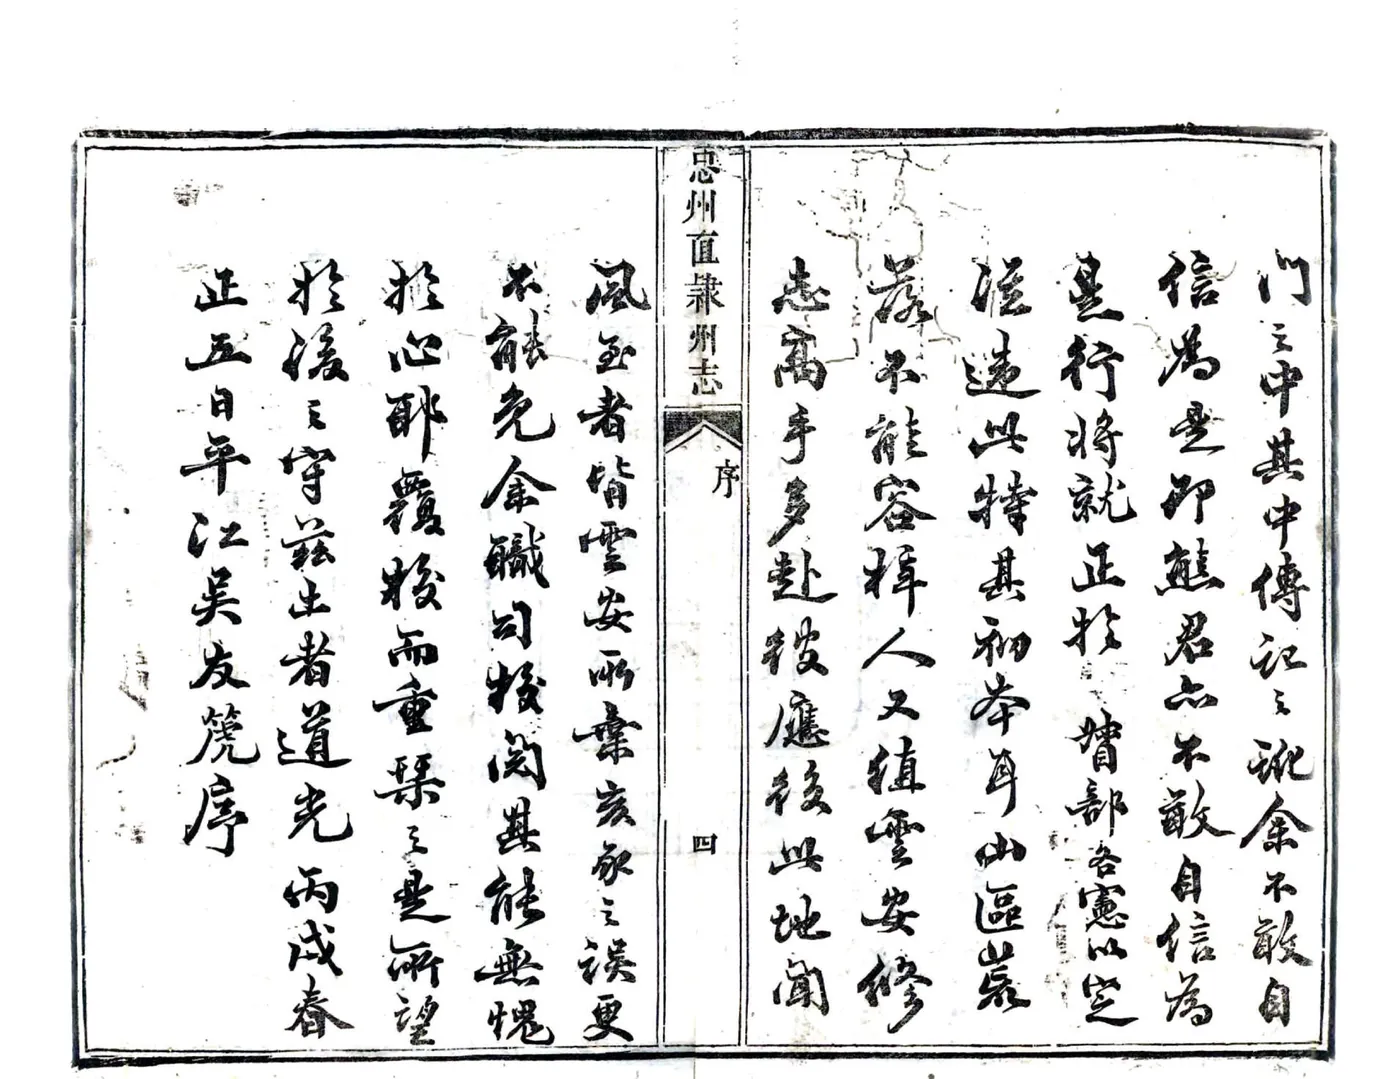 門之中其中傳記之訛余不敢自
信為是即熊君亦不敢自信為
是行將就正於 督部各憲以定
從違此特其初本耳山區叢
落不能容梓人又值雲安修
志高手多赴彼應役此地聞
忠州直隸州志
序
四
風至者皆雲安所棄亥豕之誤更
不能免余職司校閱其能無愧
於心耶覆校而重棨之是所望
於後之守茲土者道光丙戌春
正五日平江吳友篪序